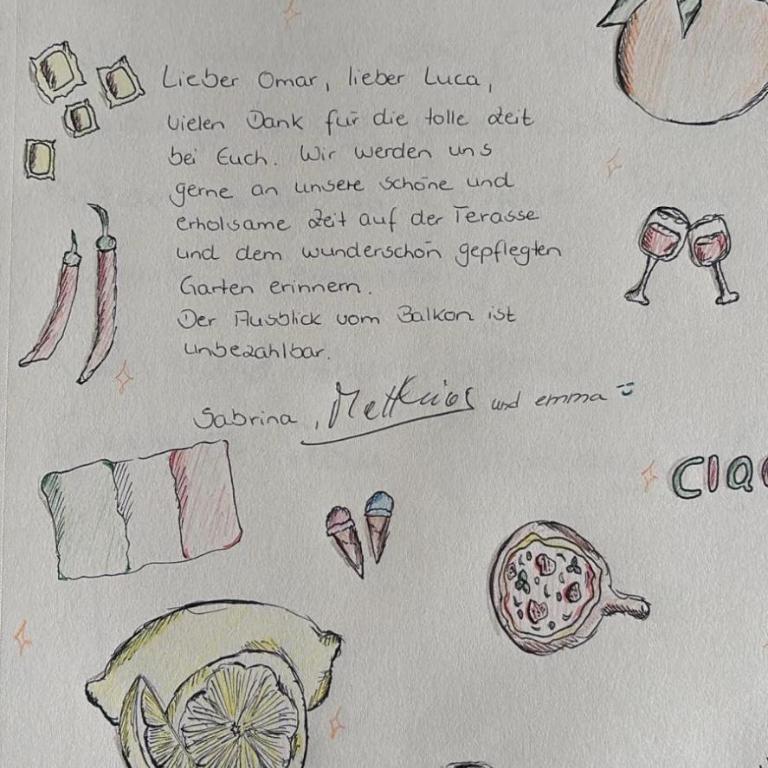 Lieber Omar, lieber Luca,
vielen Dank für die tolle Zeit
bei Euch. Wir werden uns
gerne an unsere schöne und
erholsame Zeit auf der Terasse
und dem wunderschön gepflegten
Garten erinnern.
Der Ausblick vom Balkon ist
unbezahlbar.
Sabrina, und emma